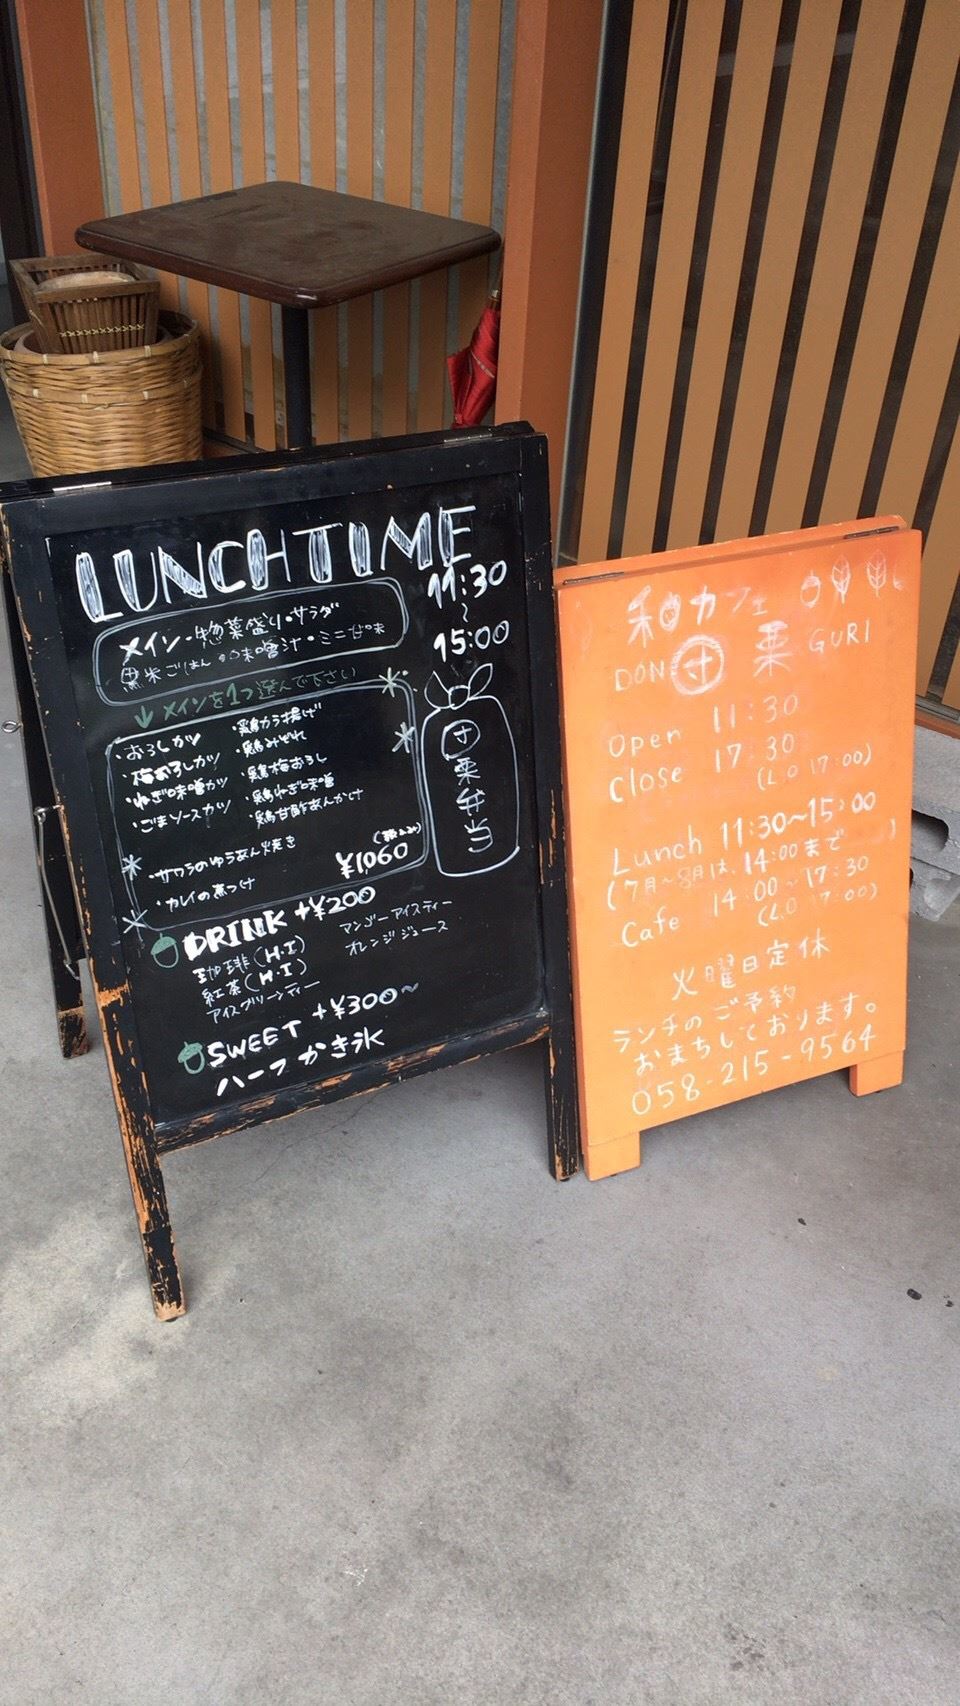 LUNCHTIME
11:30
~
15:00
メイン・惣菜盛り・サラダ
黒米ごはん・味噌汁・ミニ甘味
↓メインを1つ選んで下さい
・おろしカツ
・梅おろしカツ
・ねぎ味噌カツ
・ごまソースカツ
・鶏カラ揚げ
・鶏みぞれ
・鶏梅おろし
・鶏ねぎ味噌
・鶏甘酢あんかけ
・サワラのゆうあん焼き
・カレイの煮つけ
(税込み)
¥1060
団栗弁当
DRINK +¥200
珈琲(H・I)
紅茶(H・I)
アイスグリーンティー
マンゴーアイスティー
オレンジジュース
SWEET +¥300~
ハーフかき氷
和カフェ
DON団栗GURI
Open 11:30
Close 17:30
(L.O 17:00)
Lunch 11:30~15:00
(7月~8月は、14:00まで)
Cafe 14:00~17:30
(L.O 17:00)
火曜日定休
ランチのご予約
おまちしております。
058-215-9564